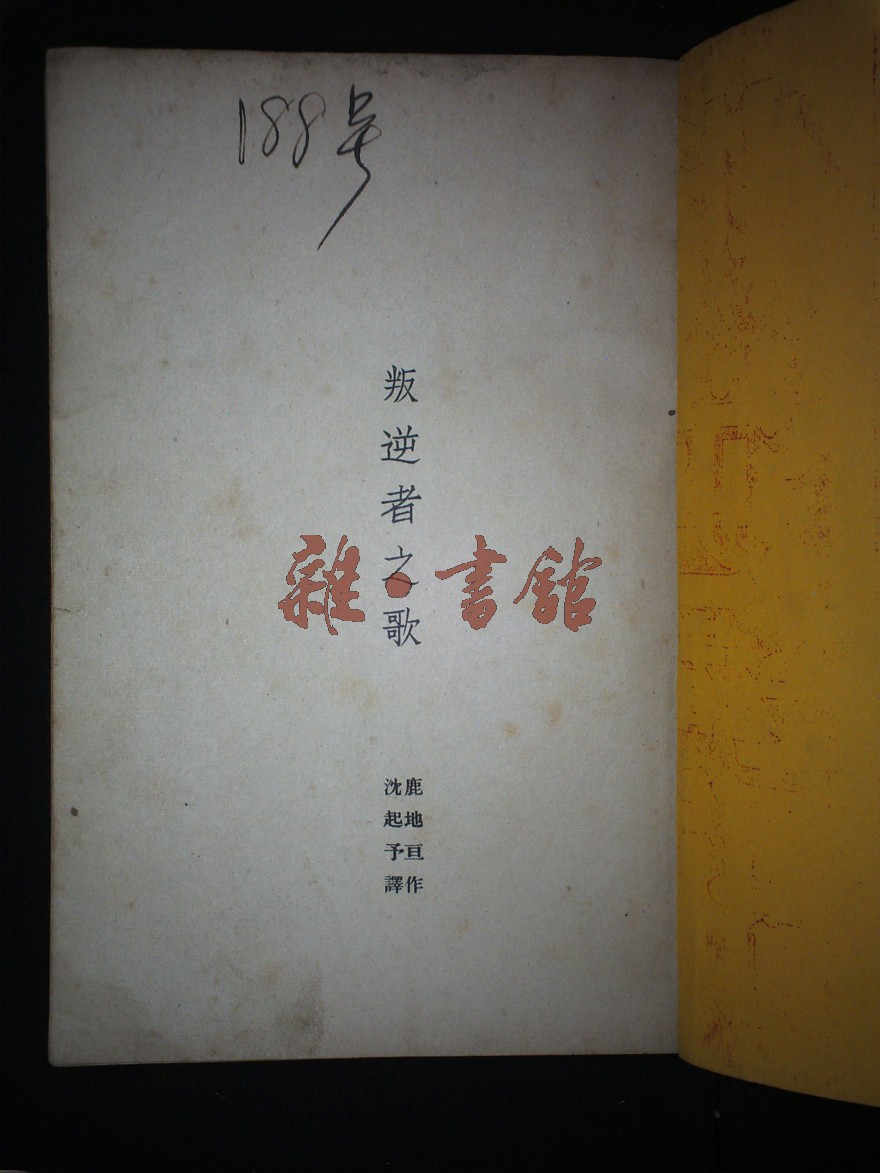 188号
叛逆者之歌
雜·書館
鹿地亘作
沈起予譯